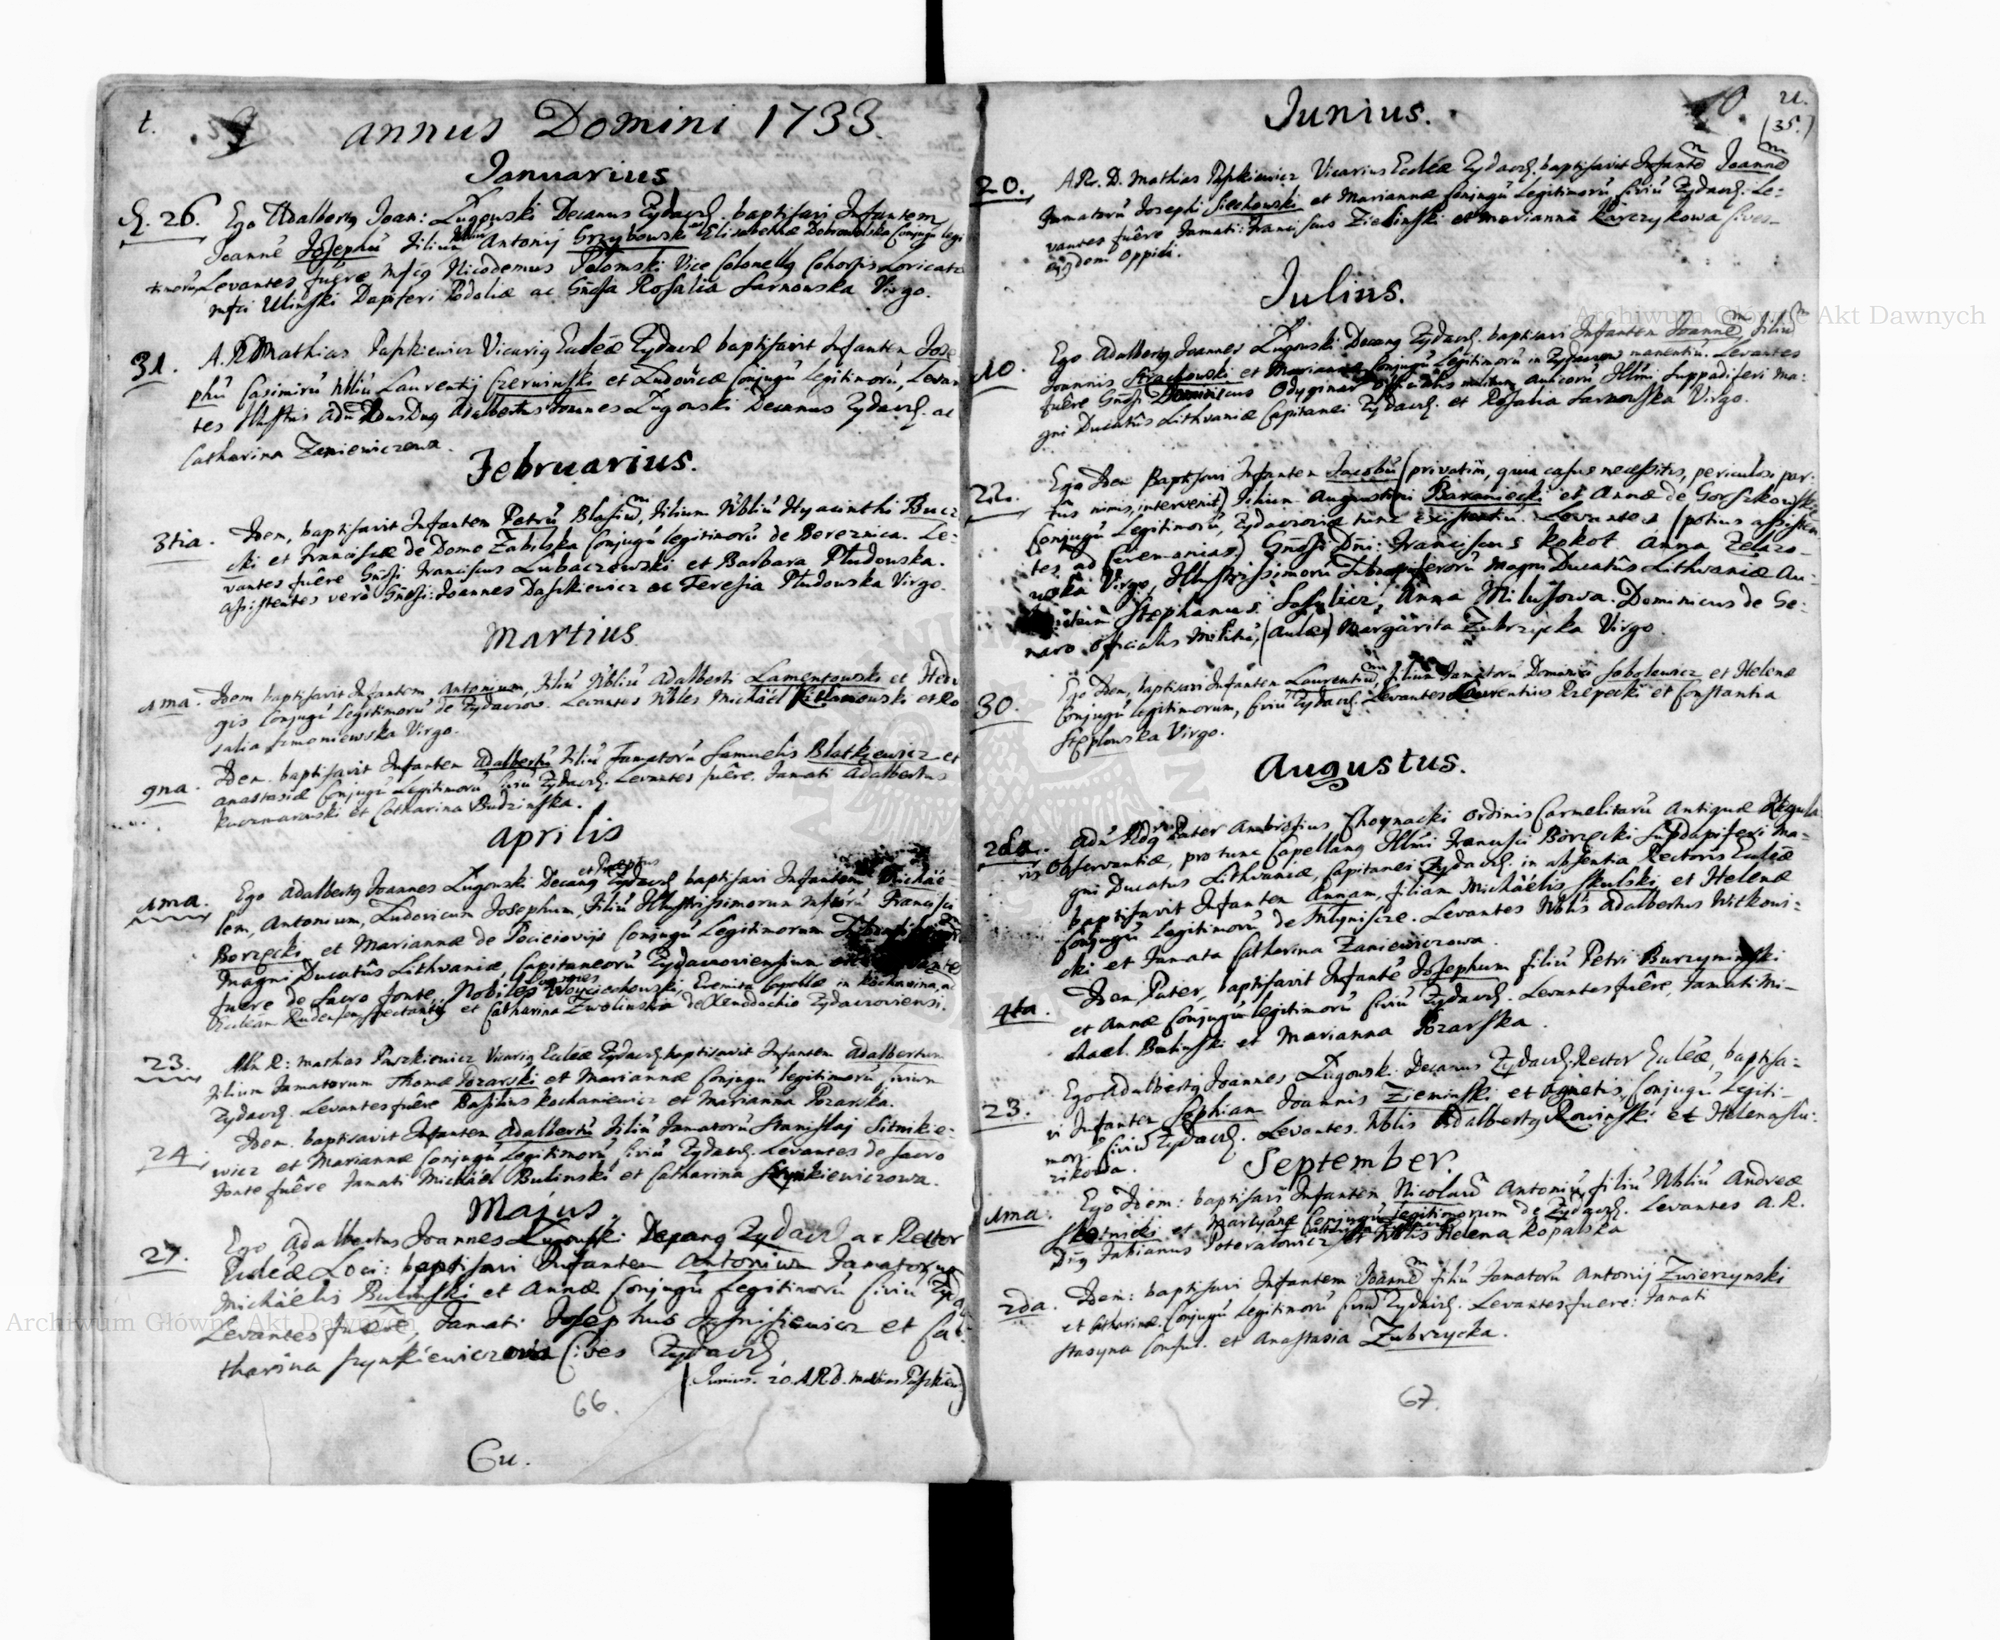 t.
9
Annus Domini 1733.
Januarius
d. 26. Ego Adalberty Joan: Ługowski Decanus Zydacz. baptisavi Infantem
Joanne Josephu Filium Nbliu Antonij Grzybowski Elisabethæ Dobrowolska Conjugu legi
timoru, Levantes fuere Mfcg Nicodemus Polomski Vice Colonelly Cohortis Loricatæ
Mfci Ulinski Dapiferi Podoliæ ac Gnosa Rosalia Sarnowska Virgo.
31. A. R. Mathias Paszkiewicz Vicarig Eccleæ Zydacz. baptisavit Infantem Jose
phu Casimiru Nbliu Laurentij Czerwinski et Ludovicæ Conjugu Legitimoru, Levan
tes Illustris Adm Rndus Dng Adalbertus Joannes Ługowski Decanus Zydacz. ac
Catharina Zaniewiczowa.
Februarius.
3tia. Idem, baptisavit Infantem Petru Blasium, Filium Nbliu Hyacinthi Bucz
cki et Franciscæ de Domo Zabilska Conjugu legitimoru de Bereznica. Le-
vantes fuêre Gnosi Franciscus Lubaczowski et Barbara Pludowska.
Assistentes verò Gnosi: Joannes Daszkiewicz ac Teresia Pludowska Virgo.
Martius
1ma. Idem baptisavit Infantem Antonium, Filiu Nbliu Adalberti Lamentowski et Hedvi
gis Conjugu Legitimoru de Zydaczow. Levantes Nbles Michaël et Ro
salia Szmoniewska Virgo.
9na. Idem baptisavit Infantem Adalbertu Filiu Famatoru Samuelis Blatkiewicz et
Anastasiæ Conjugu Legitimoru Civiu Zydacz. Levantes fuêre, Famati Adalbertus
Kaczmarowski et Catharina Budzinska.
Aprilis
et Præptus
1ma. Ego Adalberty Joannes Ługowski Decang Zydacz baptisavi Infantem Michaë-
lem, Antonium, Ludovicum Josephum, Filiu Illustrissimorum Mfcoru Francisci
Borzęcki et Mariannæ de Pocieiovijs Conjugu Legitimorum
Magni Ducatûs Lithvaniæ, Capitaneoru Zydaczoviensium
fuere de Sacro fonte, Nobiles Woyciechowski, Eremita Capellæ in Kochawina, ad
Eccleam Rudensem spectantis et Catharina Zwolinska de Xenodochio Zydaczoviensi.
23. Adm R: Mathias Paszkiewicz Vicarig Eccleæ Zydacz baptisavit Infantem Adalbertum
Filium Famatorum Thomæ Pozarski et Mariannæ Conjugu legitimoru Civium
Zydacz. Levantes fuêre Basilius Kochaniewicz et Marianna Pozarska.
24. Idem. baptisavit Infantem Adalbertu Filiu Famatoru Stanislaj Sitnikie-
wicz et Mariannæ Conjugu Legitimoru Civiu Zydacz. Levantes de Sacro
Fonte fuêre Famati Michaël Bulinski et Catharina Szynkiewiczowa.
Majus.
27. Ego Adalbertus Joannes Ługowski Decang Zydacz ac Rector
Eccleæ Loci: baptisavi Infantem Antonium Famatorum
Michäelis Bulinski et Annæ Conjugu Legitimoru Civiu Zyda
Levantes fuêre, Famati Josephus et Ca-
tharina Szynkiewiczowa Cives Zydacz
(Junius. 20. A.R.D. Mathias Paszkiew)
66.
Cu.
10. u.
(35.)
Junius.
20. A.R. D. Mathias Paszkiewicz Vicarius Eccleæ Zydacz. baptisavit Infante Joanne
Famatoru Josephi Siechowski et Mariannæ Conjugu Legitimoru Civiu Zydacz. Le-
vantes fuêre Famati: Franciscus Zielinski et Marianna Karczykowa Cives
eiusdem Oppidi.
Julius.
10. Ego Adalberty Joannes Ługowski Decang Zydacz. baptisavi Infantem Joanne Filiu
Joannis Strachowski et Mariannæ Conjugu Legitimoru in Zydaczow manentiu. Levantes
fuêre Gnosi Dominicus Odyginar Officialis militum Aulicoru Illmi Suppadiferi Ma-
gni Ducatûs Lithvaniæ Capitanei Zydacz. et Rosalia Sarnowska Virgo.
22. Ego Idem Baptisavi Infantem Jacobu (privatim, quia casus necessitis, periculosi par-
tus nimis, intervenit) Filium Augustini Baraniecki et Annæ de Gorszkowskie
Conjugu Legitimoru, Zydaczoviæ tunc existentiu. Levantes (potius assisten
tes ad Cæremonias) Gnosi Dni: Franciscus Kokot Anna Zelazo-
wska Virgo, Illustrissimoru Subdapiferoru Magni Ducatûs Lithvaniæ Au-
Stephanus Sasulicz, Anna Milusowa. Dominicus de Ge-
naro Officialis Militu, (Aulæ) Margarita Zubrzycka Virgo.
30. Ego Idem, baptisavi Infantem Laurentium, Filium Famatoru Dominici Sobolewicz et Helenæ
Conjugu legitimorum, Civiu Zydacz. Levantes Laurentius Rzepecki et Constantia
Steplowska Virgo.
Augustus.
2da. Adm Rdg Pater Ambrosius Choynacki Ordinis Carmelitaru Antiquæ Regula
ris Observantiæ, pro tunc Capellang Illmi Francisci Borzęcki Subdapiferi Ma-
gni Ducatus Lithvaniæ, Capitanei Zydacz. in absentia Rectoris Eccleæ
baptisavit Infantem Annam, Filiam Michäelis Skulski et Helenæ
Conjugu Legitimoru de Mlynische. Levantes Nblis Adalbertus Witkows-
cki et Famata Catharina Zaniewiczowa.
4ta. Idem Pater, baptisavit Infante Josephum filiu Petri Burzyminski
et Annæ Conjugu legitimoru Civiu Zydacz. Levantes fuêre, Famati Mi-
chael. Bulinski et Marianna Pozarska.
23. Ego Adalberty Joannes Ługowski Decanus Zydacz. Rector Eccleæ, baptisa-
vi Infantem Sophiam Joannis Zieminski et Agnetis, Conjugu Legiti-
mor. Civiu Zydacz. Levantes. Nblis Adalberty Rowinski et Helena Slu-
zikowa.
September.
1ma. Ego Idem: baptisavi Infantem Nicolau Antoniu filiu Nbliu Andreæ
Skotnicki et Martyanæ Conjugu legitimorum de Zydacz. Levantes A. R.
Dng Fabianus Poteralowicz et Nblis Helena Kopalska
2da. Idem: baptisavi Infantem Joanne filiu Famatoru Antonij Zwierzynski
et Catharinæ Conjugu Legitimoru Civiu Zydacz. Levantes fuere: Famati
Stasyna Consul. et Anastasia Zubrzycka.
67.
Archiwum Główne Akt Dawnych
Archiwum Główne Akt Dawnych